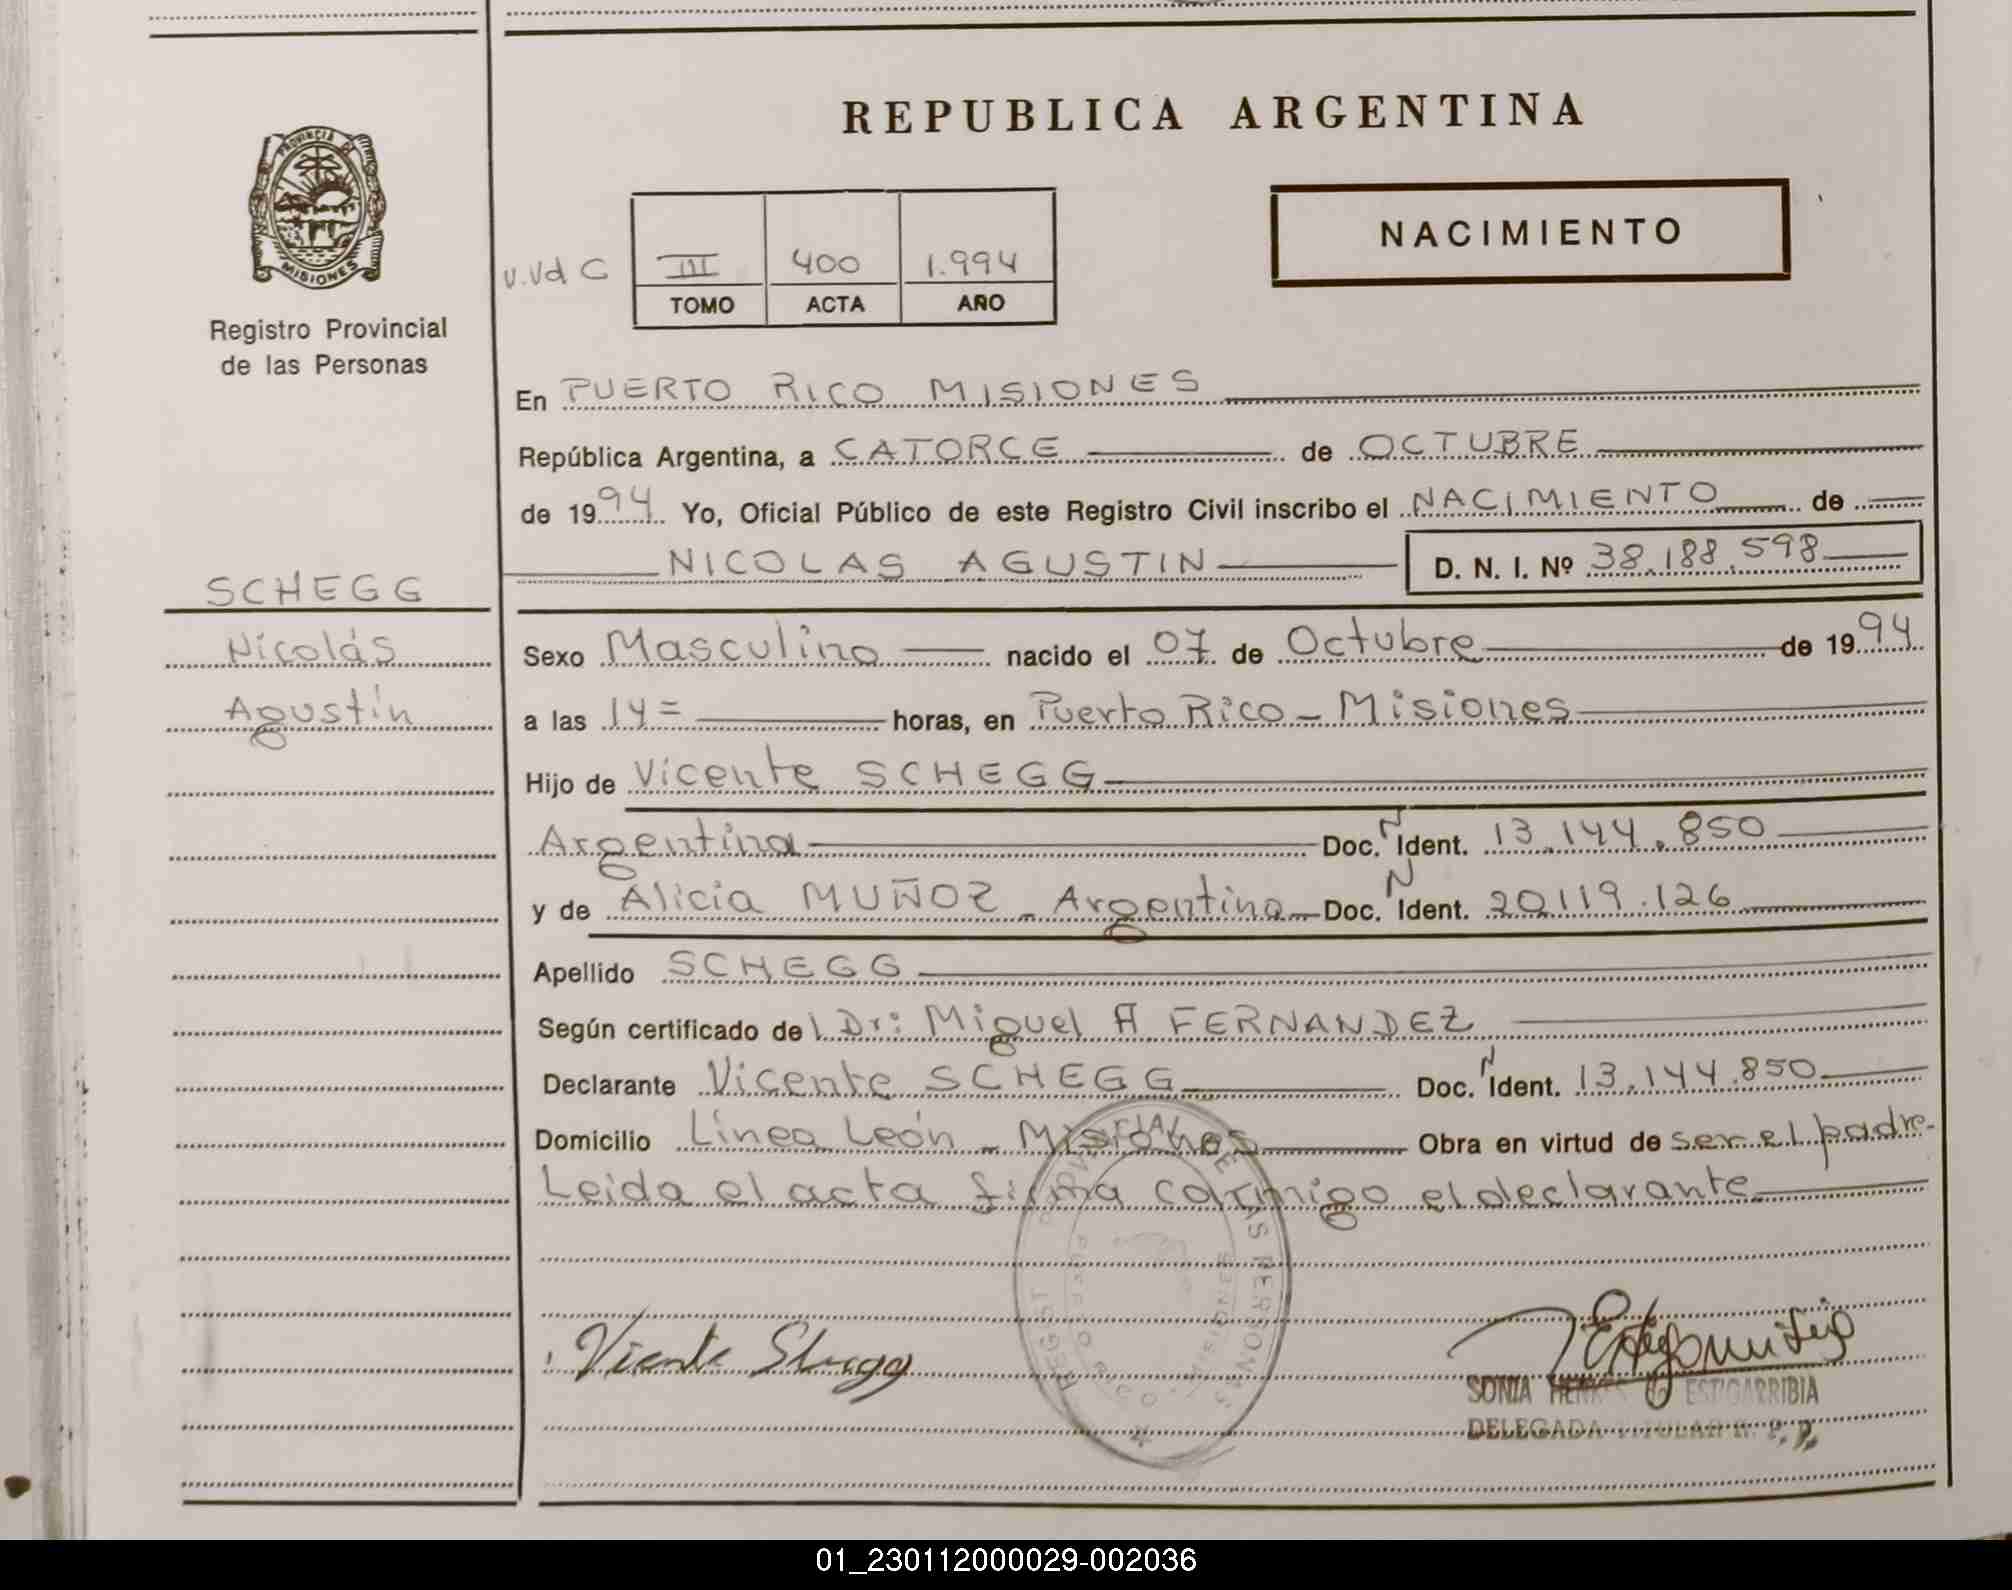 REPUBLICA ARGENTINA
PROVINCIA DE
MISIONES
Registro Provincial
de las Personas
NACIMIENTO
V.Vd C III 400 1.994
TOMO ACTA AÑO
En PUERTO RICO MISIONES
República Argentina, a CATORCE de OCTUBRE
de 1994 Yo, Oficial Público de este Registro Civil inscribo el NACIMIENTO de
NICOLAS AGUSTIN D. N. I. Nº 38.188.598
SCHEGG
Nicolás
Agustín
Sexo Masculino nacido el 07 de Octubre de 1994
a las 14= horas, en Puerto Rico - Misiones
Hijo de Vicente SCHEGG
Argentina Doc. N Ident. 13.144.850
y de Alicia MUÑOZ - Argentina Doc. N Ident. 20119.126
Apellido SCHEGG
Según certificado del Dr: Miguel A FERNANDEZ
Declarante Vicente SCHEGG Doc. N Ident. 13.144.850
Domicilio Línea León - Misiones Obra en virtud de ser el padre-
Leida el acta firma conmigo el declarante
PROVINCIAL DE LAS PERSONAS
PUERTO RICO - MISIONES
Vicente Schegg
SONIA ESTIGARRIBIA
DELEGADA TITULAR R. P. P.
01_230112000029-002036